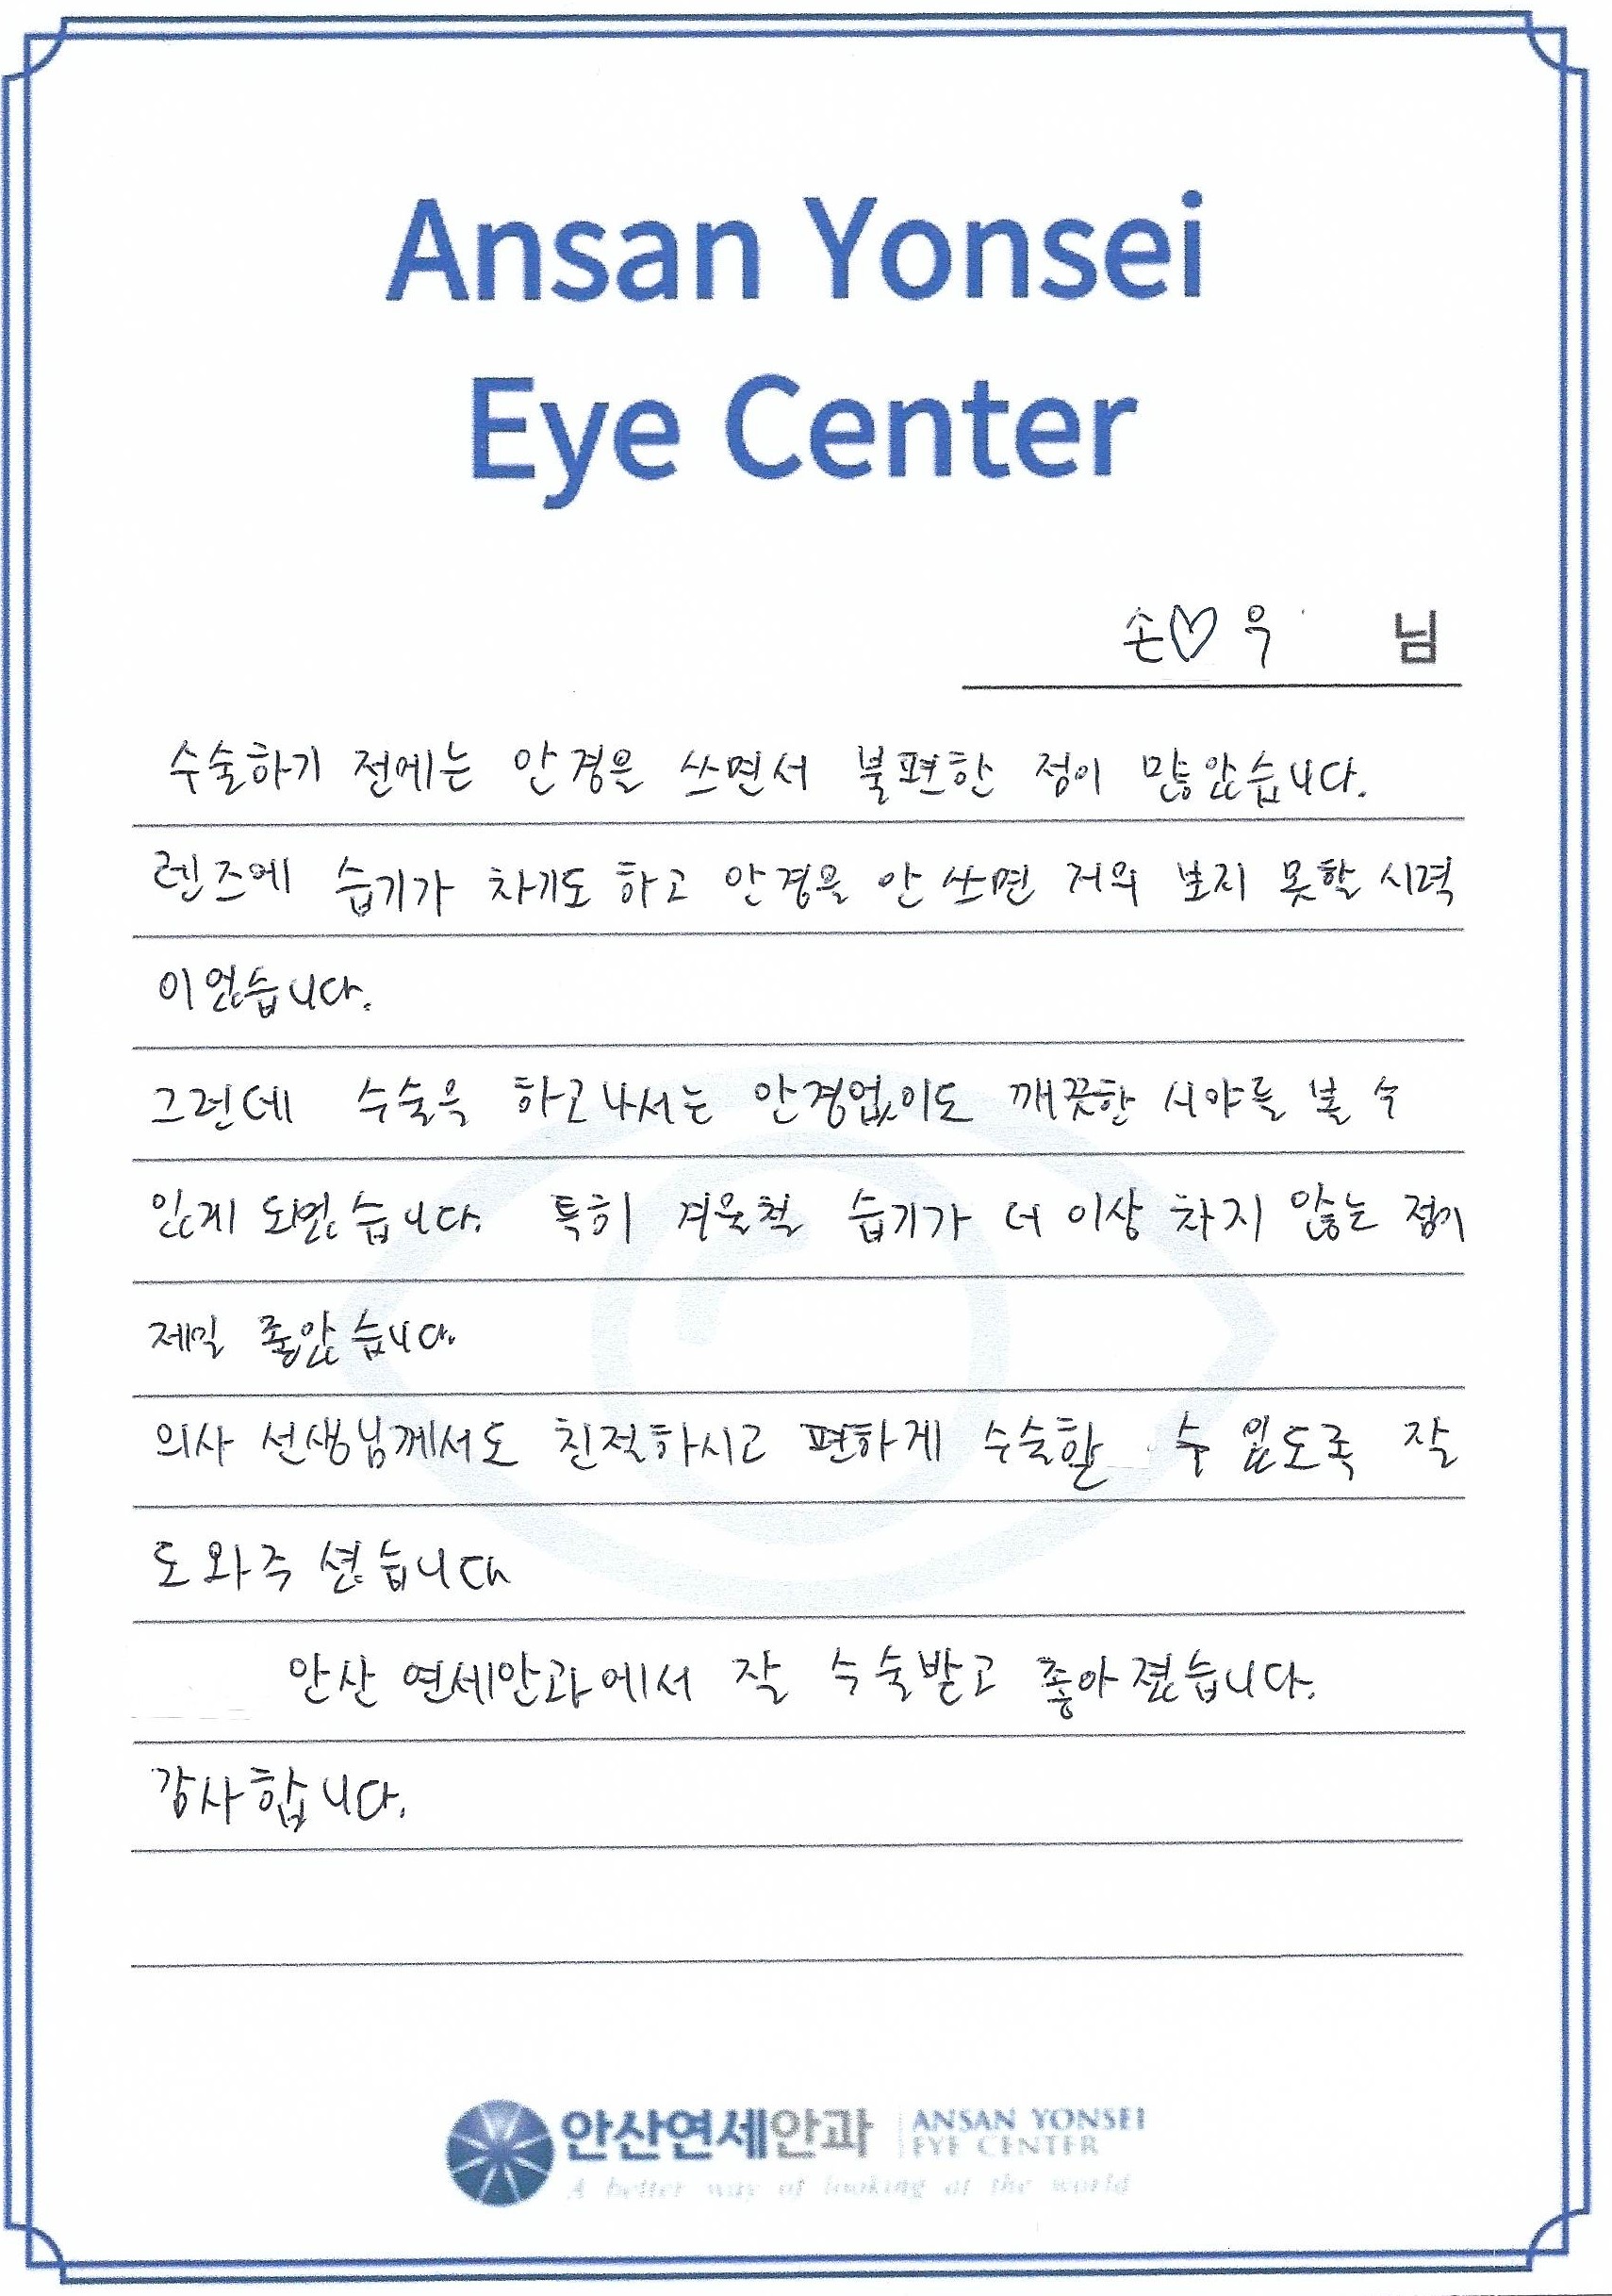 Ansan Yonsei
Eye Center
손♡우 님
수술하기 전에는 안경을 쓰면서 불편한 점이 많았습니다.
렌즈에 습기가 차기도 하고 안경을 안 쓰면 거의 보지 못할 시력
이었습니다.
그런데 수술을 하고나서는 안경없이도 깨끗한 시야를 볼 수
있게 되었습니다. 특히 겨울철 습기가 더 이상 차지 않는 점이
제일 좋았습니다.
의사 선생님께서도 친절하시고 편하게 수술할 수 있도록 잘
도와주셨습니다
안산 연세안과에서 잘 수술받고 좋아졌습니다.
감사합니다.
안산연세안과 ANSAN YONSEI
EYE CENTER
A better way of looking at the world